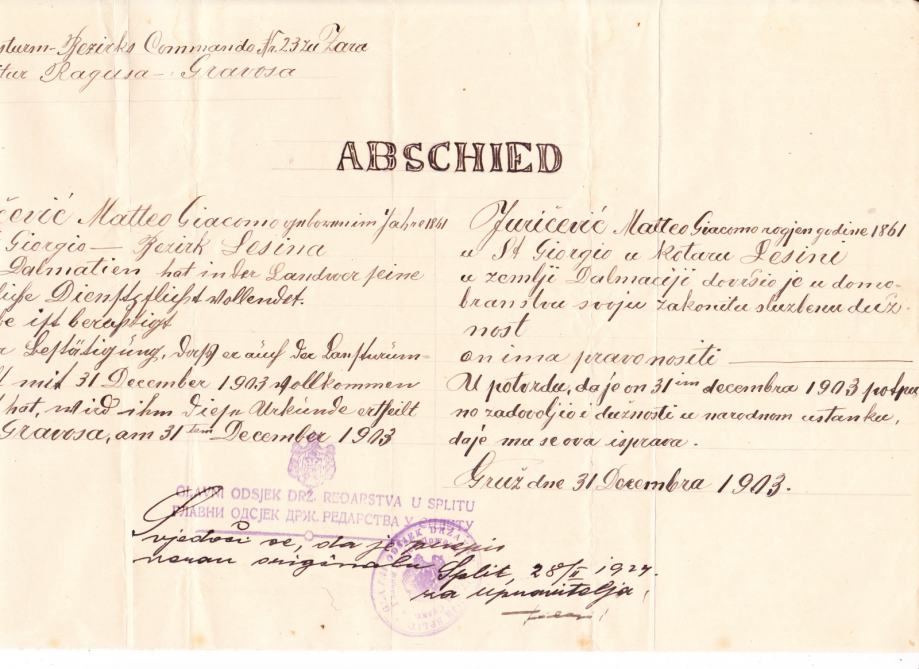 sturm-Bezirks Commando Nr. 23 zu Zara
Ragusa - Gravosa
ABSCHIED
čević Matteo Giacomo geboren im Jahre 1861
Giorgio — Bezirk Lesina
Dalmatien hat in der Landwer seine
liche Dienstpflicht vollendet.
be ist
Bestätigung, daß er auch der
mit 31 December 1903 vollkommen
hat, wird ihm diese Urkunde ertheilt
Gravosa, am 31 ten December 1903
Juričević Matteo Giacomo rogjen godine 1861
u St Giorgio u kotaru Lesini
u zemlji Dalmaciji dovršio je u domo-
branstvu svoju zakonitu službenu duž-
nost
on ima pravo nositi
U potvrdu, da je on 31 im decembra 1903 potpu
no zadovoljio i dužnosti u narodnom ustanku,
daje mu se ova isprava.
Gruž dne 31 Decembra 1903.
GLAVNI ODSJEK DRŽ. REDARSTVA U SPLITU
ГЛАВНИ ОДСЈЕК ДРЖ. РЕДАРСТВА У СПЛИТУ
Svjedoči se, da je prepis
originalu
Split, 28/II 1927.
za upravitelja: